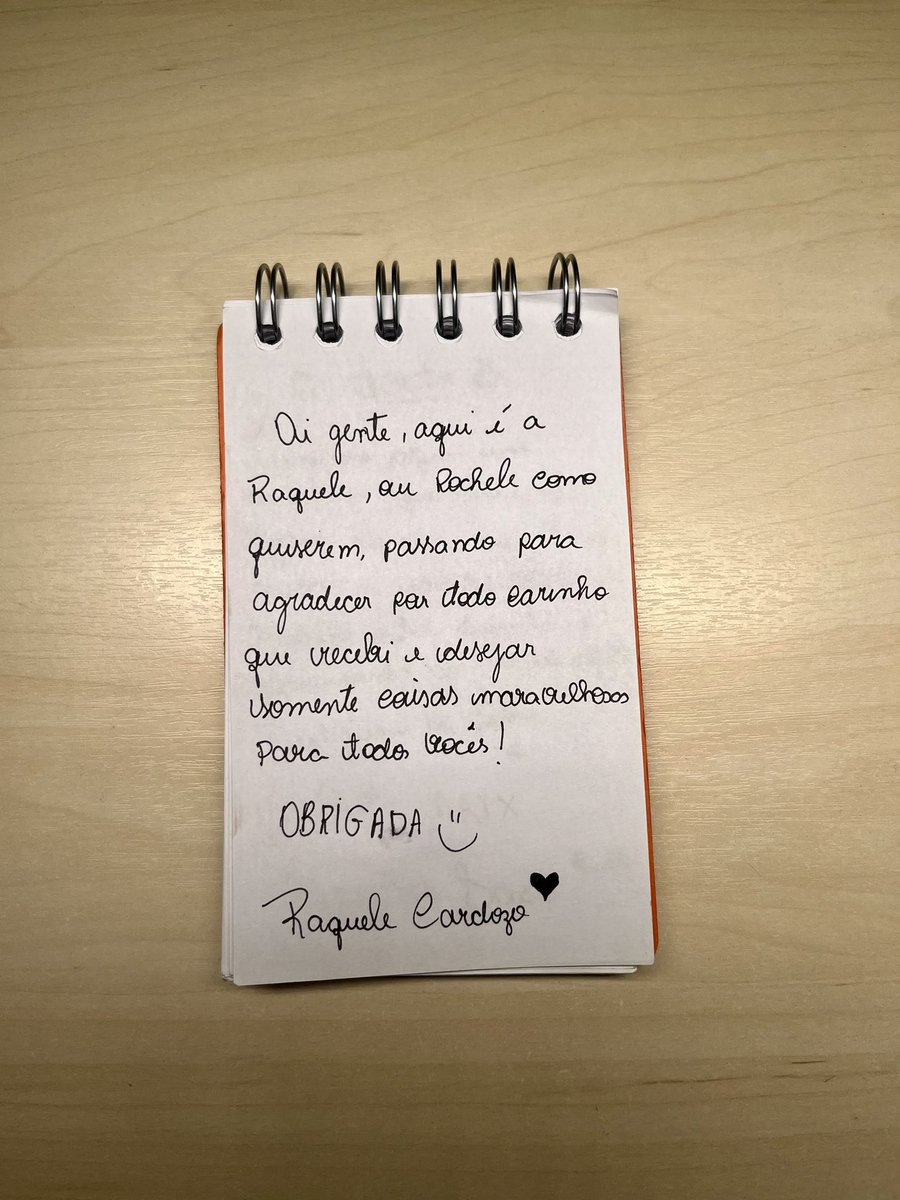 Oi gente, aqui é a
Raquele, ou Rochele como
quiserem, passando para
agradecer por todo carinho
que recebi e desejar
somente coisas maravilhosas
para todos vocês!
OBRIGADA
Raquele Cardozo